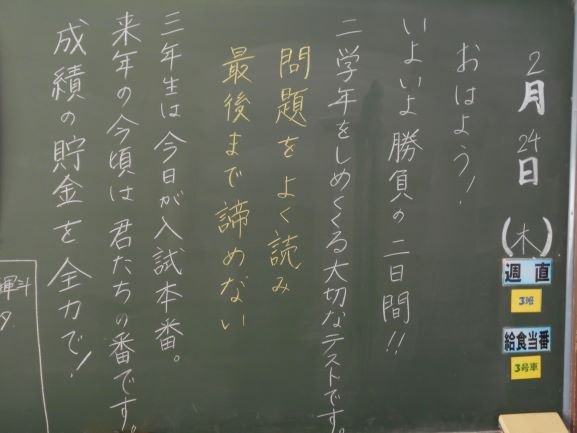 2月24日(木)
週直
3班
給食当番
3号車
おはよう!
いよいよ勝負の二日間!!
二学年をしめくくる大切なテストです。
問題をよく読み
最後まで諦めない
三年生は今日が入試本番。
来年の今頃は君たちの番です。
成績の貯金を全力で!